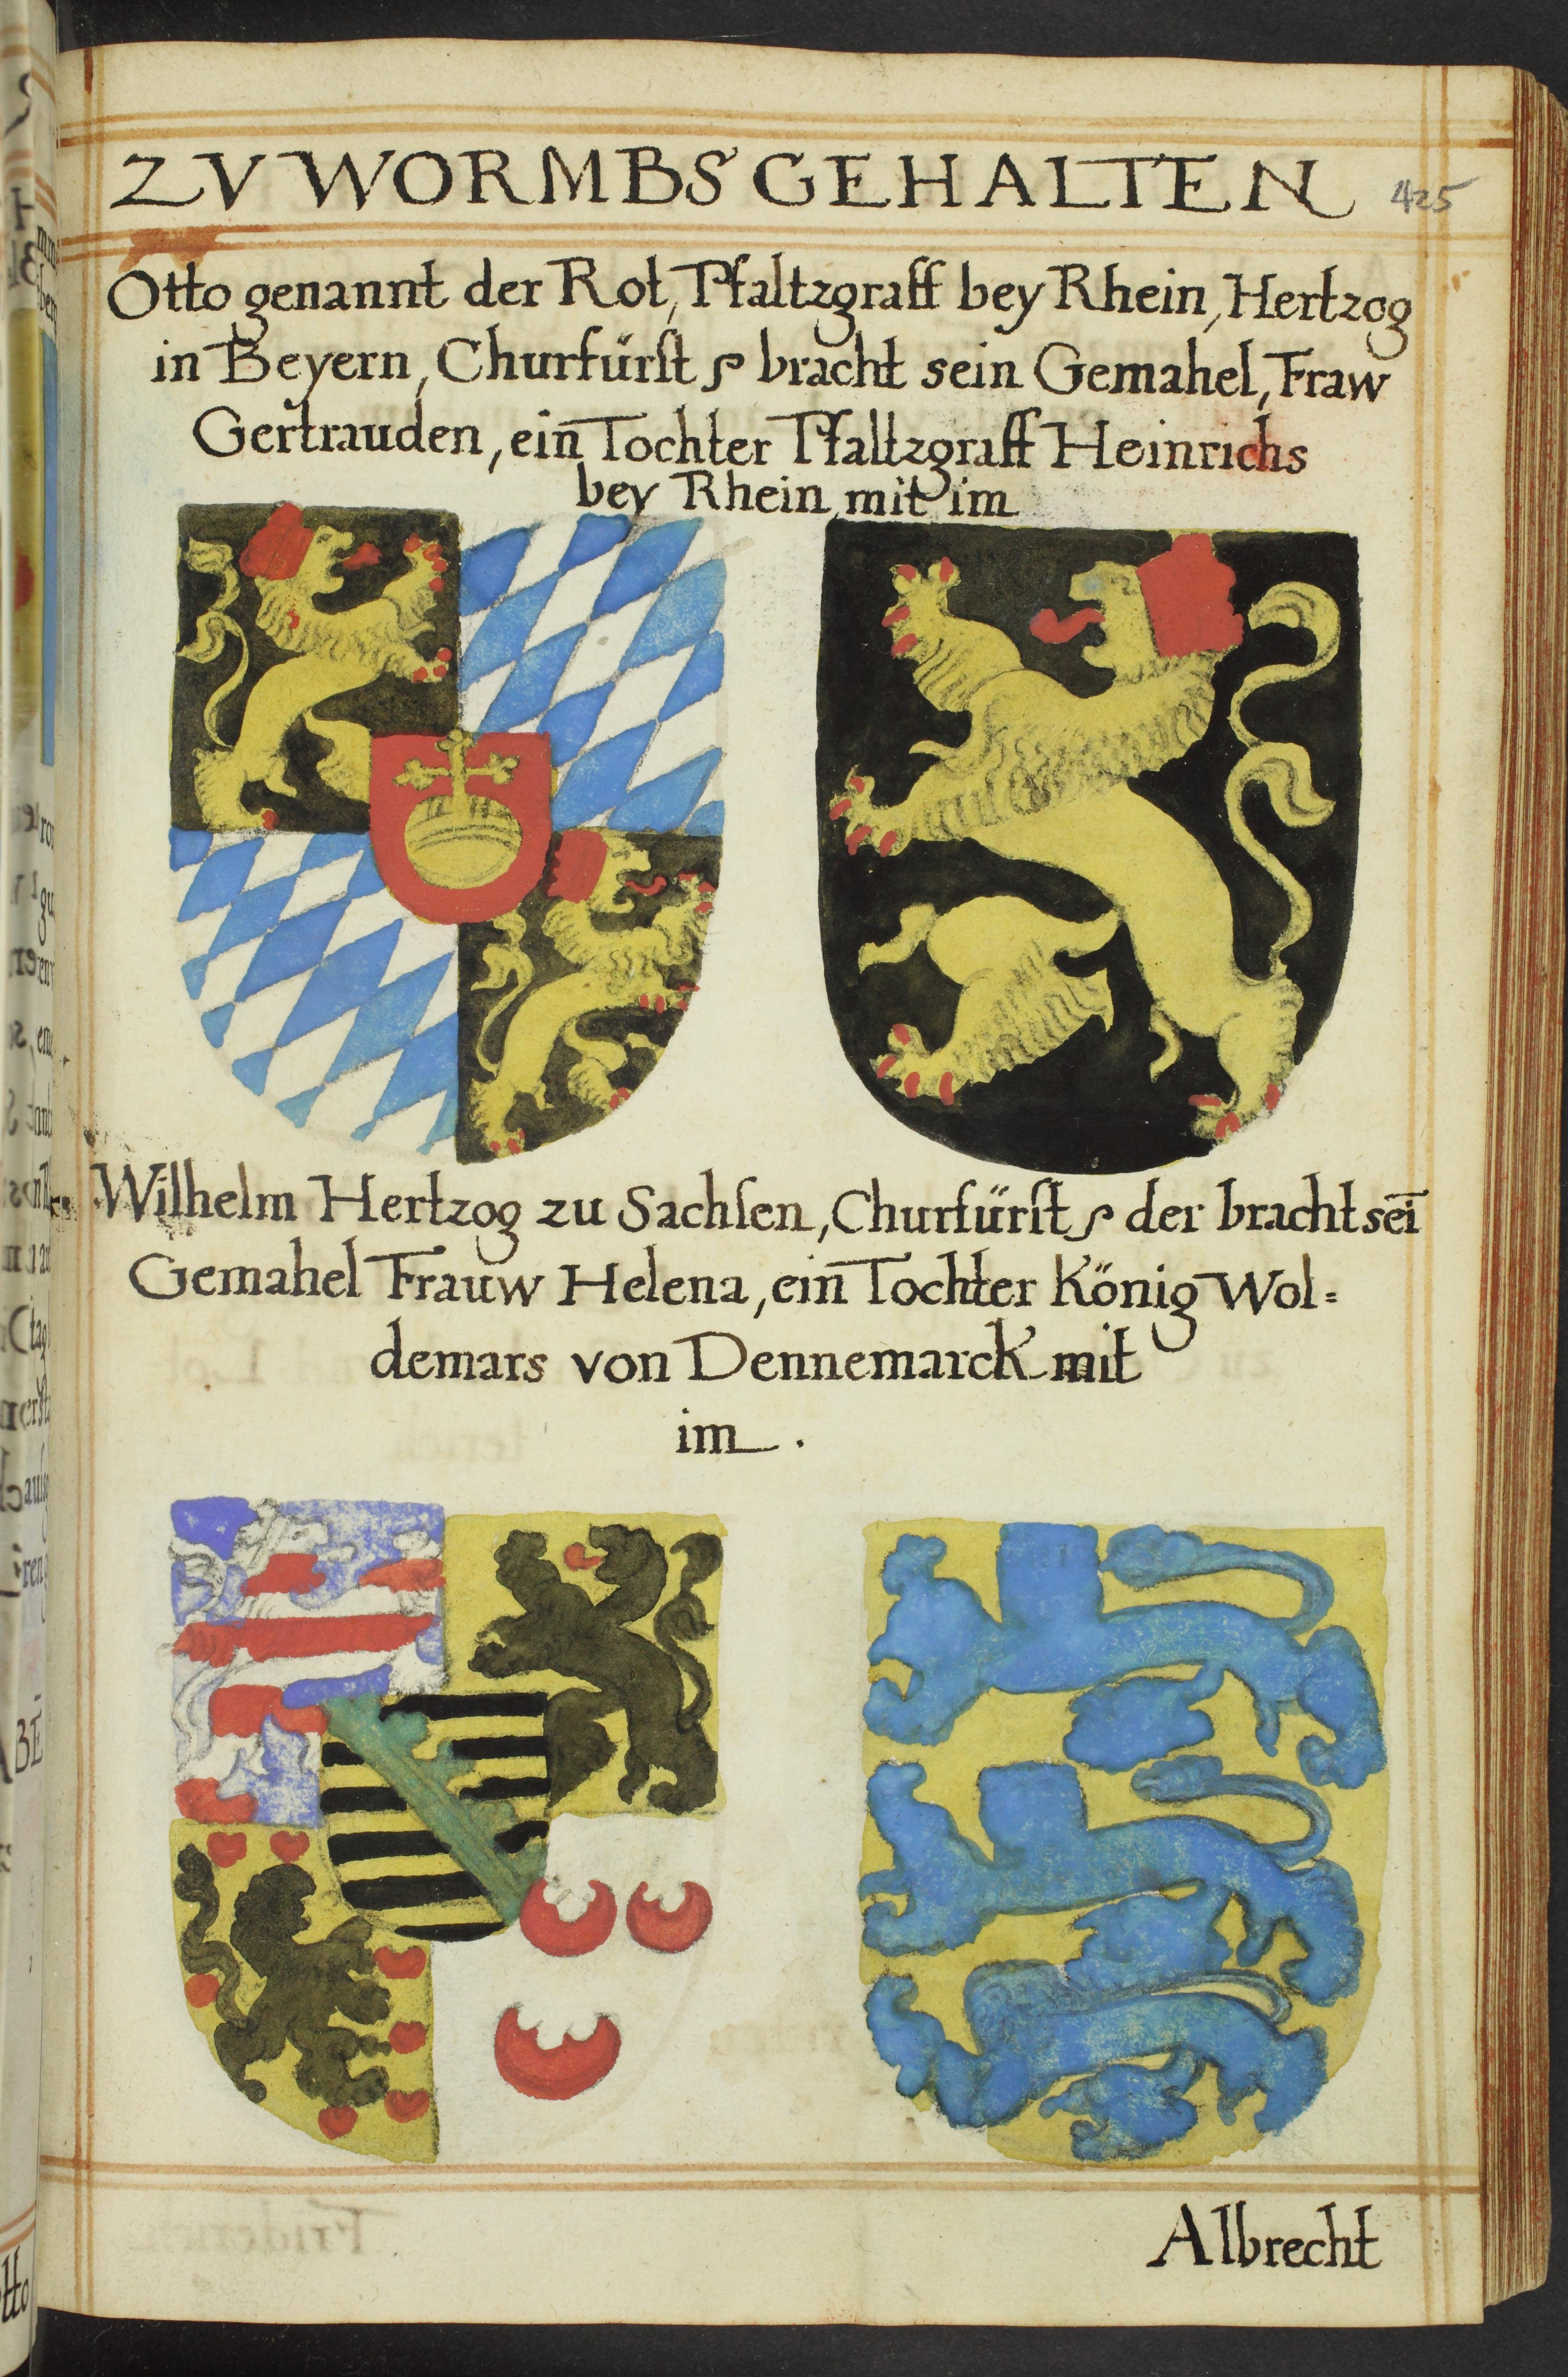 ZV WORMBS GEHALTEN
425
Otto genannt der Rot, Pfaltzgraff bey Rhein, Hertzog
in Beyern, Churfürst ꝛ bracht sein Gemahel, Fraw
Gertrauden, ein Tochter Pfaltzgraff Heinrichs
bey Rhein, mit im
Wilhelm Hertzog zu Sachsen, Churfürst ꝛ der bracht sei̅
Gemahel Frauw Helena, ein Tochter König Wol=
demars von Dennemarck mit
im.
Albrecht